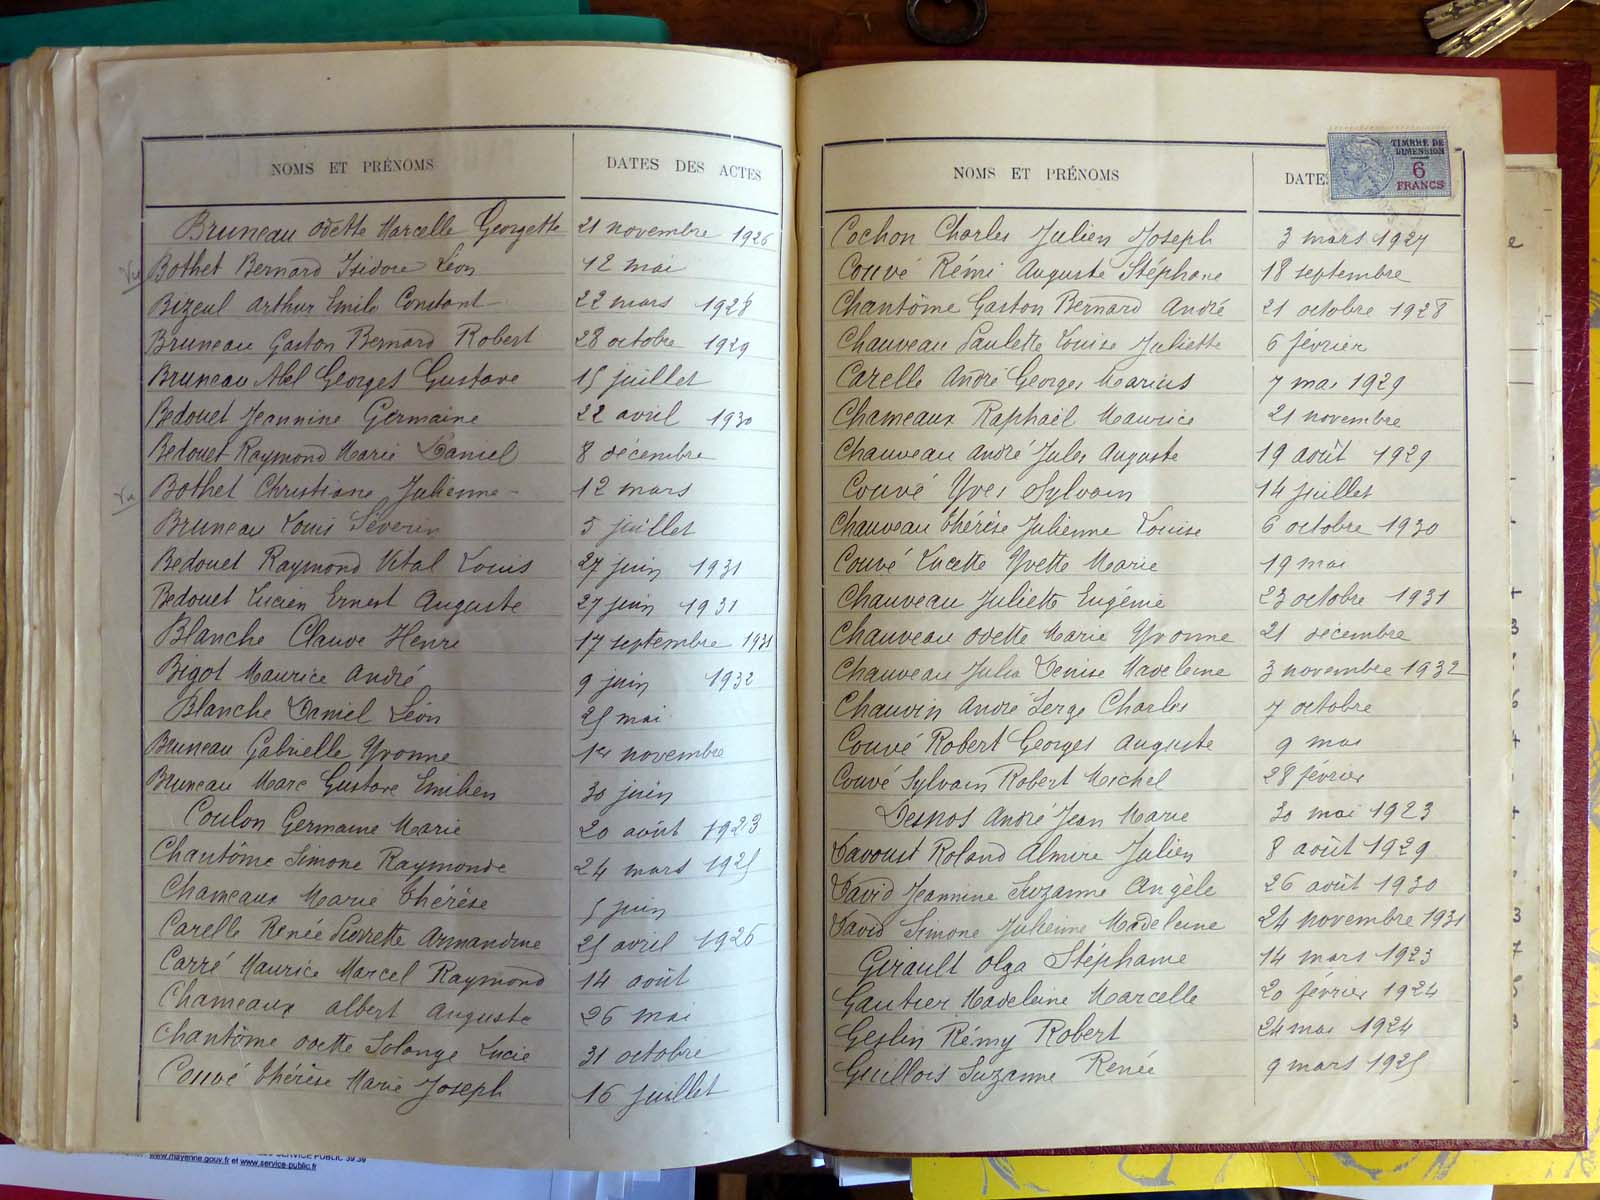 NOMS ET PRÉNOMS DATES DES ACTES
Bruneau Odette Marcelle Georgette 21 novembre 1926
Vu Bothet Bernard Isidore Léon 12 mai
Bizeul Arthur Emile Constant 22 mars 1928
Bruneau Gaston Bernard Robert 28 octobre 1929
Bruneau Abel Georges Gustave 15 juillet
Bedouet Jeannine Germaine 22 avril 1930
Bedouet Raymond Marie Daniel 8 décembre
Vu Bothet Christiane Julienne 12 mars
Bruneau Louis Séverin 5 juillet
Bedouet Raymond Vital Louis 27 juin 1931
Bedouet Lucien Ernest Auguste 27 juin 1931
Blanche Claude Henri 17 septembre 1931
Bigot Maurice André 9 juin 1932
Blanche Daniel Léon 25 mai
Bruneau Gabrielle Yvonne novembre
Bruneau Marc Gustave Emilien 30 juin
Coulon Germaine Marie 20 août 1923
Chantôme Simone Raymonde 24 mars 1925
Chameaux Marie Thérèse 5 juin
Carelle Renée Pierrette Armandine 25 avril 1926
Carré Maurice Marcel Raymond 14 août
Chameaux Albert Auguste 26 mai
Chantôme Odette Solange Lucie 31 octobre
Couvé Thérèse Marie Joseph 16 juillet
NOMS ET PRÉNOMS DATES
TIMBRE DE
DIMENSION
6
FRANCS
Cochon Charles Julien Joseph 3 mars 1927
Couvé Rémi Auguste Stéphane 18 septembre
Chantôme Gaston Bernard André 21 octobre 1928
Chauveau Paulette Louise Juliette 6 février
Carelle André Georges Marius 7 mai 1929
Chameaux Raphaël Maurice 21 novembre
Chauveau André Jules Auguste 19 août 1929
Couvé Yves Sylvain 14 juillet
Chauveau Thérèse Julienne Louise 6 octobre 1930
Couvé Lucette Yvette Marie 19 mai
Chauveau Juliette Eugénie 23 octobre 1931
Chauveau Odette Marie Yvonne 21 décembre
Chauveau Julia Denise Madeleine 3 novembre 1932
Chauvin André Serge Charles 7 octobre
Couvé Robert Georges Auguste 9 mai
Couvé Sylvain Robert Michel 28 février
Desnos André Jean Marie 30 mai 1923
Davoust Roland Almire Julien 8 août 1929
David Jeannine Suzanne Angèle 26 août 1930
David Simone Julienne Madeleine 24 novembre 1931
Girault Olga Stéphanie 14 mars 1923
Gautier Madeleine Marcelle 20 février 1924
Geslin Rémy Robert 24 mai 1924
Guillois Suzanne Renée 9 mars 1925
SERVICE PUBLIC 39 39
www.mayenne.gouv.fr et www.service-public.fr